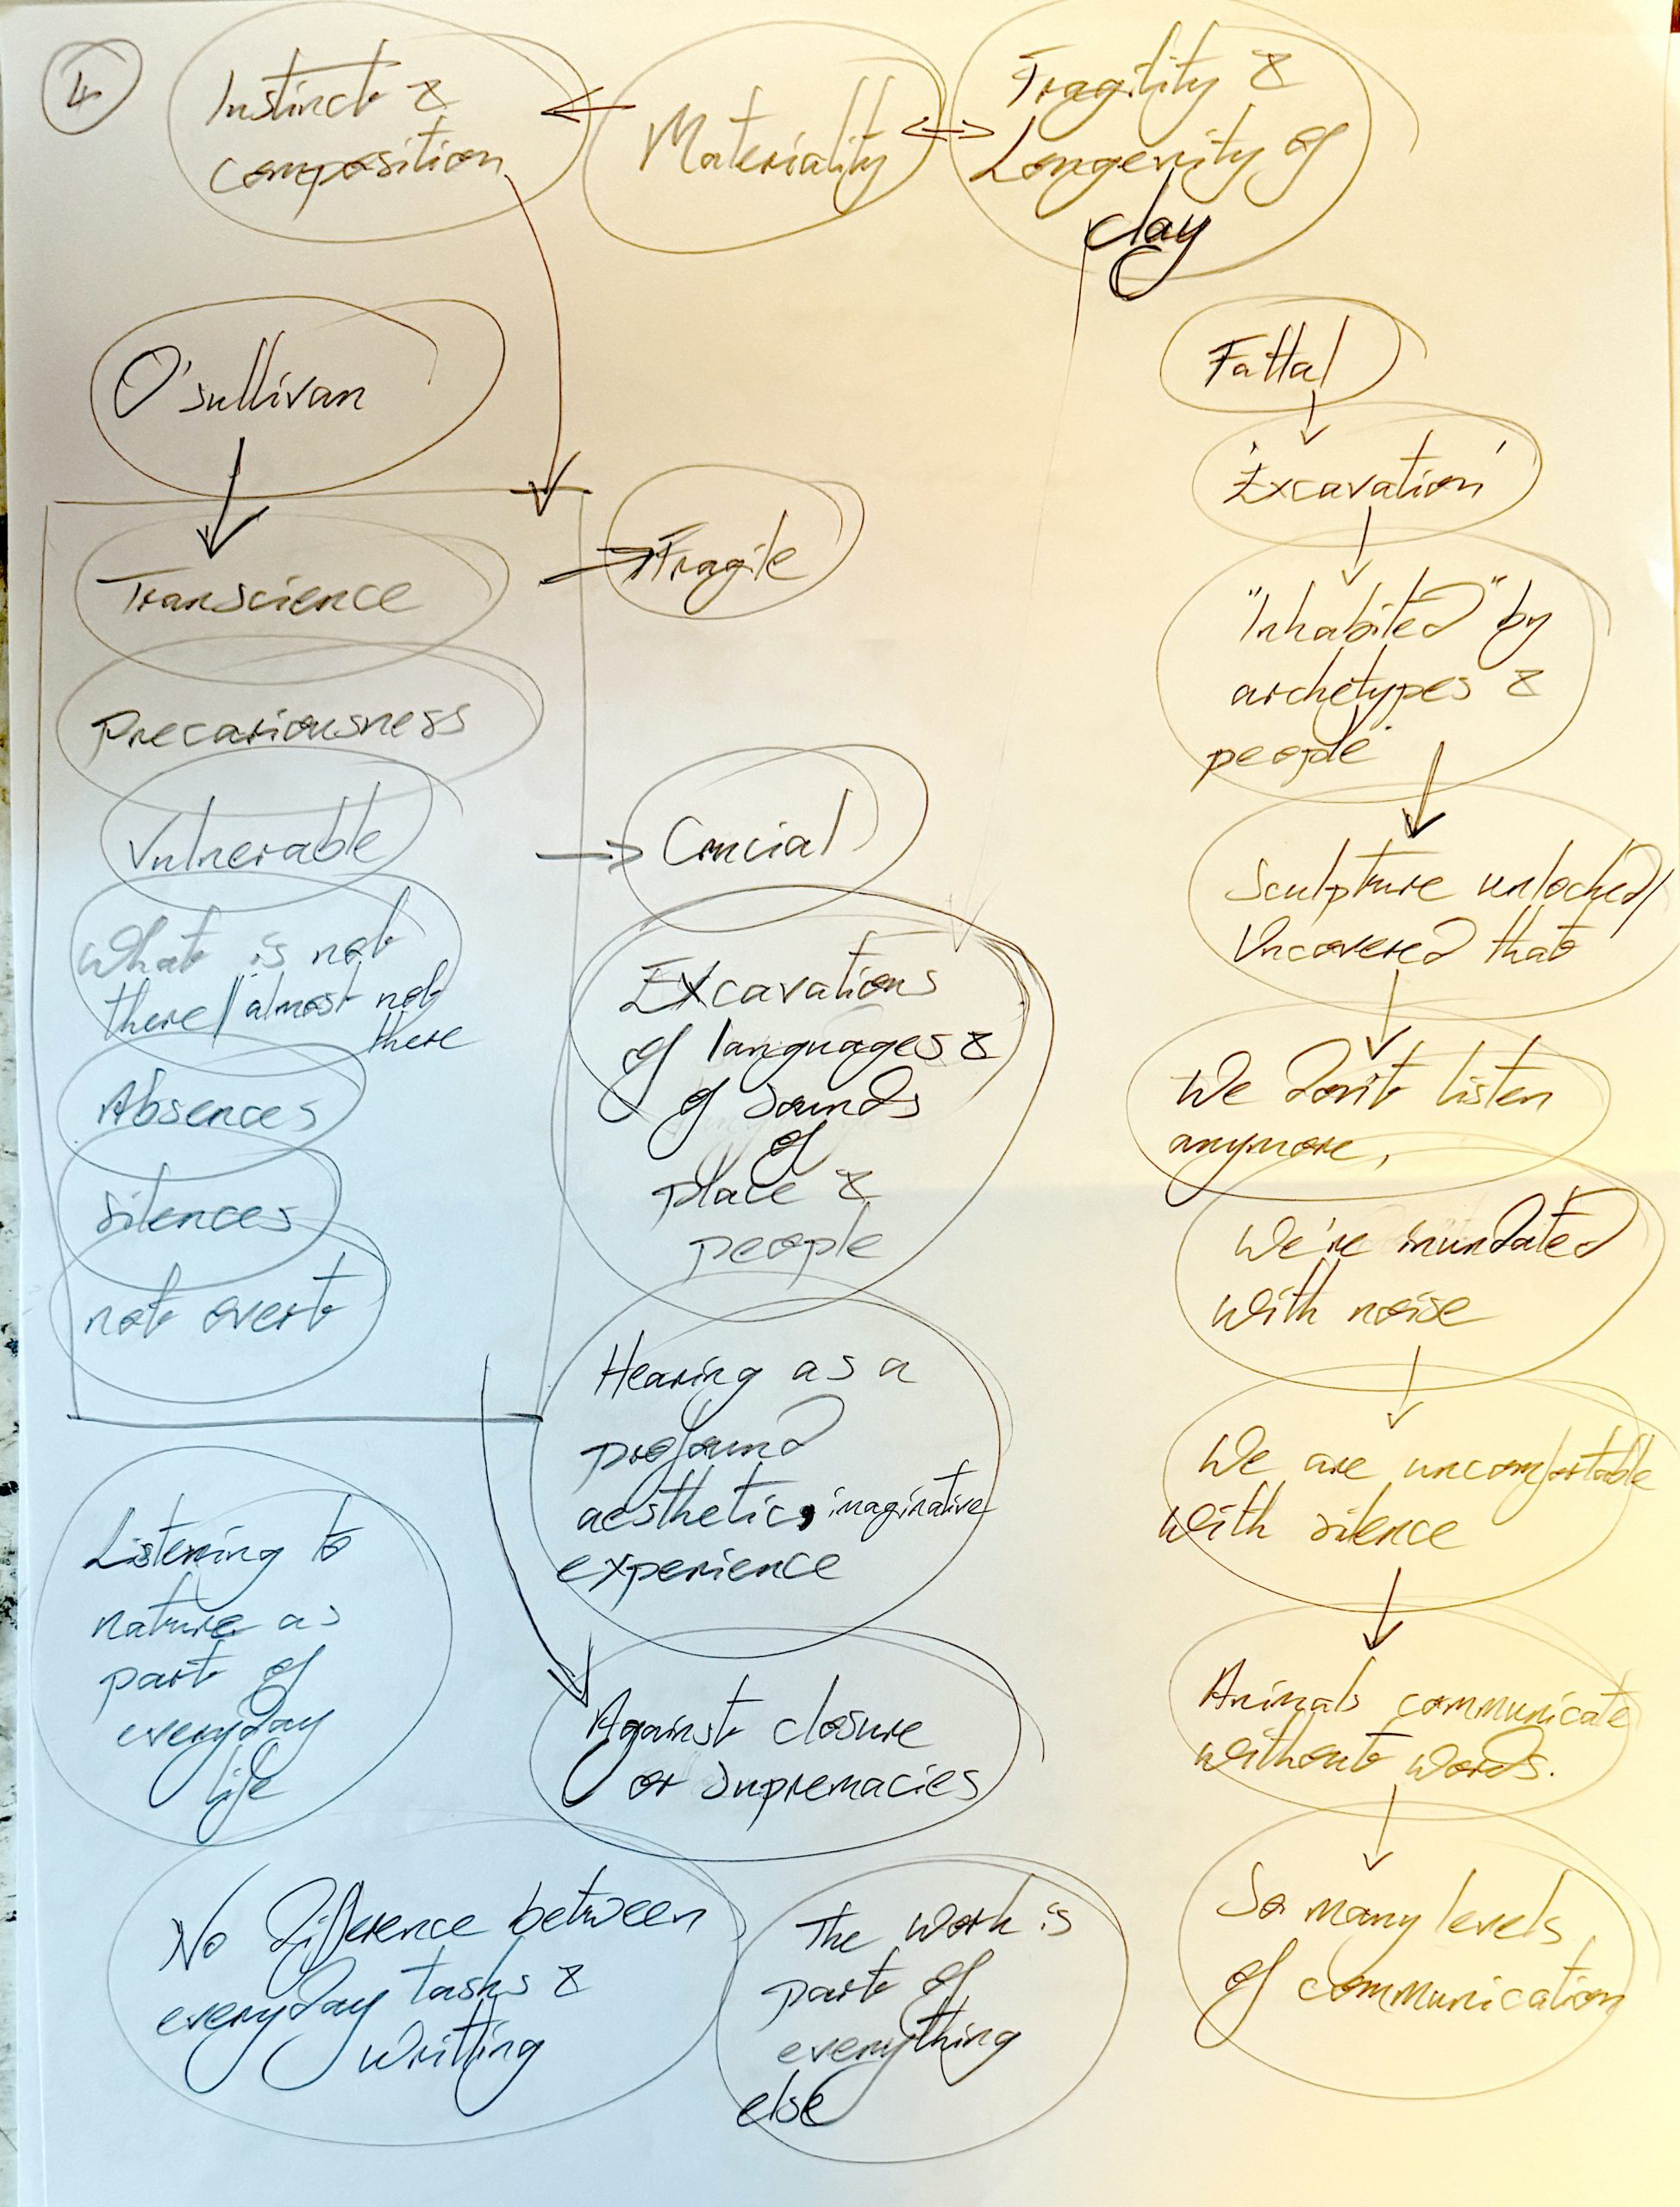 4
Instinct &
composition
Materiality
Fragility &
Longevity of
clay
O'sullivan
Transcience
Precariousness
Vulnerable
What is not
there / almost not
there
Absences
Silences
not overt
Fragile
Crucial
Excavations
of languages &
of sounds
of
place &
people
Hearing as a
profound
aesthetic, imaginative
experience
Against closure
or supremacies
Listening to
nature as
part of
everyday
life
No difference between
everyday tasks &
writting
The work is
part of
everything
else
Fattal
'Excavation'
"Inhabited" by
archetypes &
people
Sculpture unlocked/
Uncovered that
We don't listen
anymore,
We're inundated
with noise
We are uncomfortable
with silence
Animals communicate
without words.
So many levels
of communication